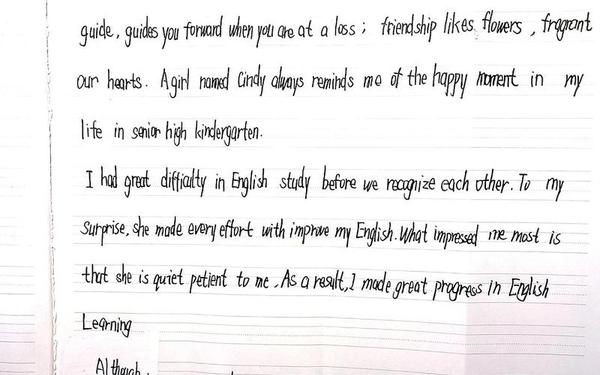 guide, guides you forward when you are at a loss; friendship likes flowers, fragrant
our hearts. A girl named Cindy always reminds me of the happy moment in my
life in senior high kindergarten.
I had great difficialty in English study before we recognize each other. To my
surprise, she made every effort with improve my English. What impressed me most is
that she is quiet petient to me. As a result, I made great progress in English
Learning
Although